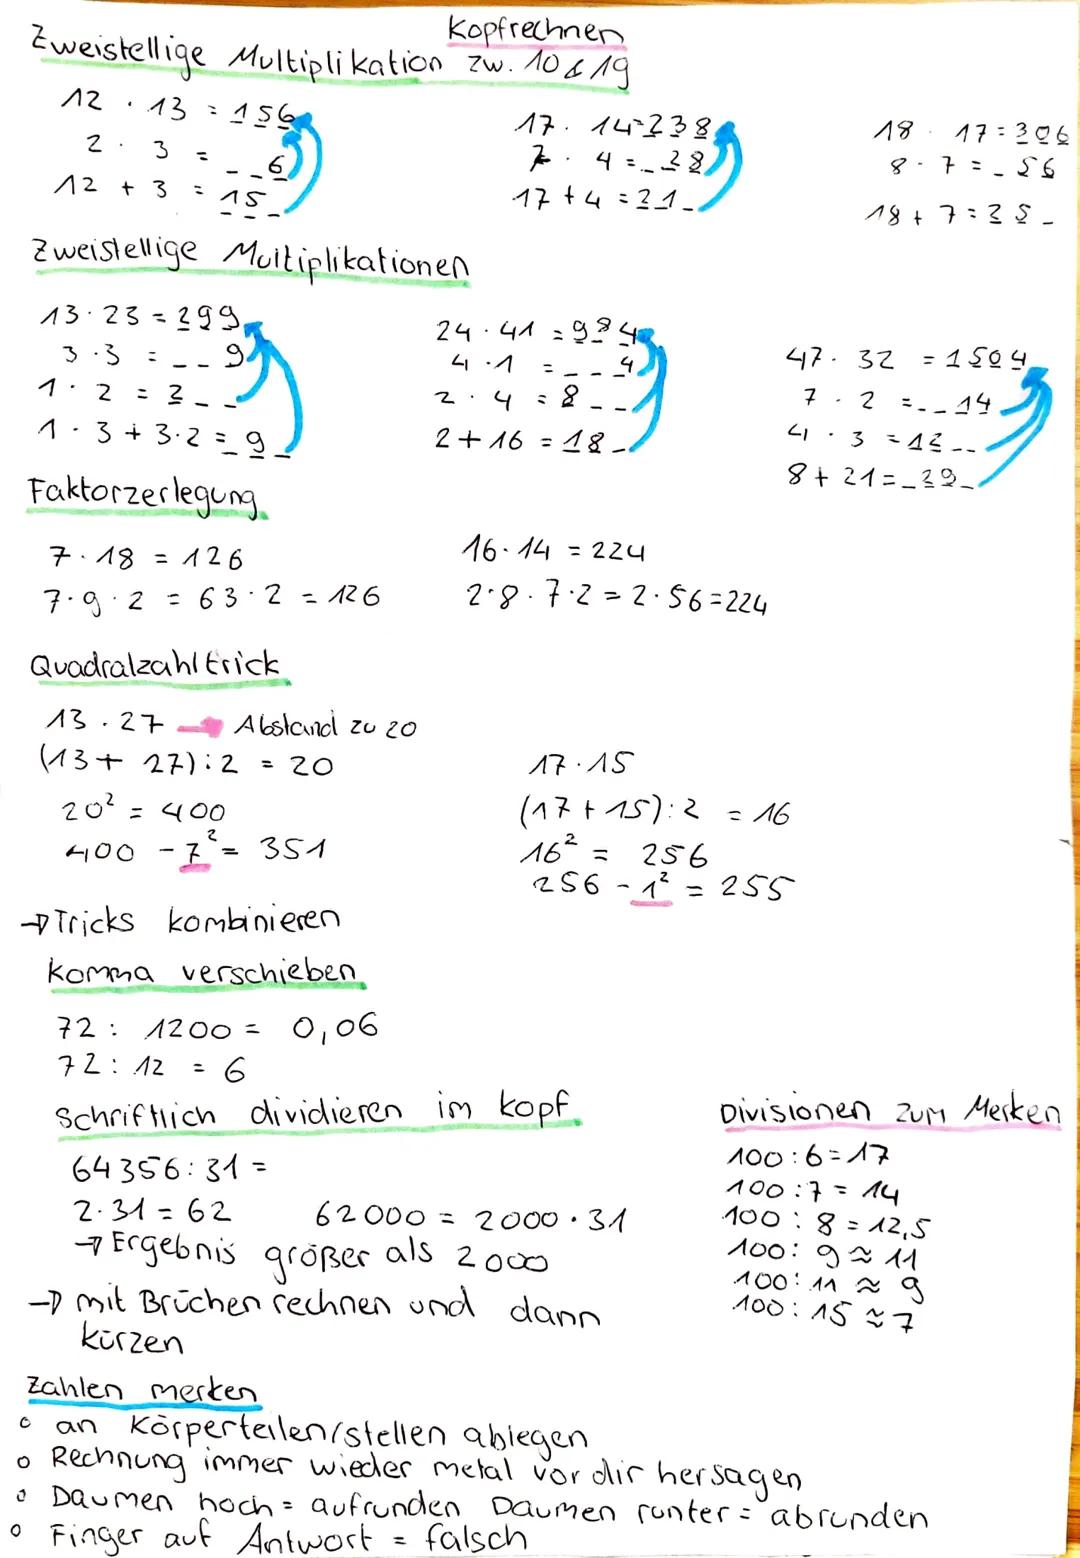 Kopfrechnen
Zweistellige Multiplikation zw. 10 & 19
12 · 13 = 156
2 · 3 = _ _ 6
12 + 3 = 15 _
17 · 14 = 238
7 · 4 = _ 28
17 + 4 = 21 _
18 · 17 = 306
8 · 7 = _ 56
18 + 7 = 25 _
Zweistellige Multiplikationen
13 · 23 = 299
3 · 3 = _ _ 9
1 · 2 = 2 _ _
1 · 3 + 3 · 2 = _ 9 _
24 · 41 = 984
4 · 1 = _ _ 4
2 · 4 = 8 _ _
2 + 16 = 18 _
47 · 32 = 1504
7 · 2 = _ _ 14
4 · 3 = 12 _ _
8 + 21 = _ 29 _
Faktorzerlegung
7 · 18 = 126
7 · 9 · 2 = 63 · 2 = 126
16 · 14 = 224
2 · 8 · 7 · 2 = 2 · 56 = 224
Quadralzahltrick
13 · 27 → Abstand zu 20
(13 + 27) : 2 = 20
20² = 400
400 - 7² = 351
17 · 15
(17 + 15) : 2 = 16
16² = 256
256 - 1² = 255
→ Tricks kombinieren
Komma verschieben
72 : 1200 = 0,06
72 : 12 = 6
Schriftlich dividieren im Kopf
64356 : 31 =
2 · 31 = 62 62000 = 2000 · 31
→ Ergebnis größer als 2000
→ mit Brüchen rechnen und dann
kürzen
Divisionen zum Merken
100 : 6 = 17
100 : 7 = 14
100 : 8 = 12,5
100 : 9 ≈ 11
100 : 11 ≈ 9
100 : 15 ≈ 7
Zahlen merken
○ an Körperteilen/stellen ablegen
○ Rechnung immer wieder metal vor dir hersagen
○ Daumen hoch = aufrunden Daumen runter = abrunden
○ Finger auf Antwort = falsch